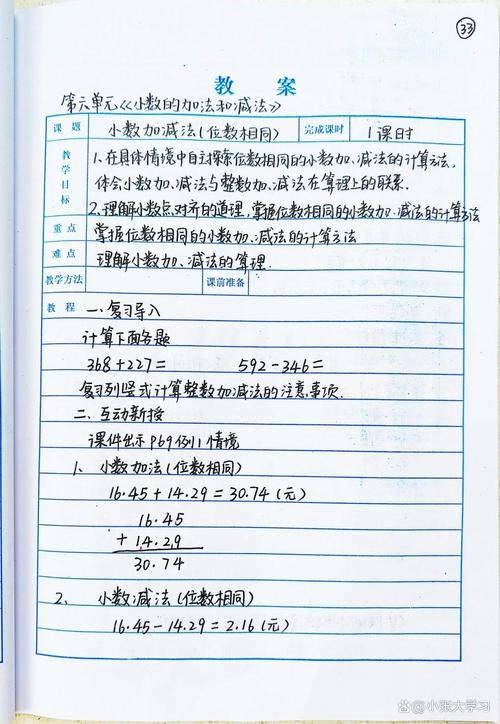 33
教 案
第六单元《小数的加法和减法》
课 题 小数加减法(位数相同) 完成课时 1课时
教学目标 1、在具体情境中自主探索位数相同的小数加、减法的计算方法,
体会小数加、减法与整数加、减法在算理上的联系.
2、理解小数点对齐的道理,掌握位数相同的小数加、减法的计算方法
重 点 掌握位数相同的小数加、减法的计算方法
难 点 理解小数加、减法的算理.
教学方法 课前准备
教 程 一、复习导入
计算下面各题
368+227= 592-346=
复习列竖式计算整数加减法的注意事项.
二、互动新授
课件出示P69例1情境
1、 小数加法(位数相同)
16.45+14.29=30.74(元)
16.45
+14.29
30.74
2、 小数减法(位数相同)
16.45-14.29=2.16(元)
@小张大学习